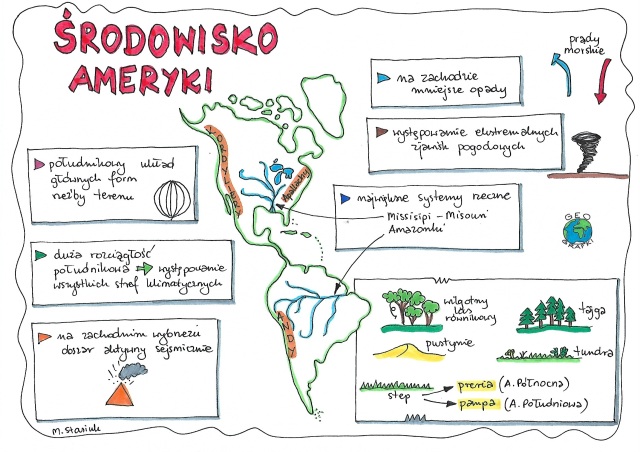 ŚRODOWISKO
AMERYKI
prądy
morskie
na zachodzie
mniejsze opady
występowanie ekstremalnych
zjawisk pogodowych
południkowy układ
głównych form
rzeźby terenu
KORDYLIERY
Appalachy
największe systemy rzeczne
Missisipi - Missouri
Amazonki
GEO
GRAFKI
duża rozciągłość
południkowa → występowanie
wszystkich stref klimatycznych
ANDY
na zachodnim wybrzeżu
obszar aktywny sejsmicznie
wilgotny
las
równikowy
tajga
pustynie
tundra
step
preria (A. Północna)
pampa (A. Południowa)
M. Stasiuk